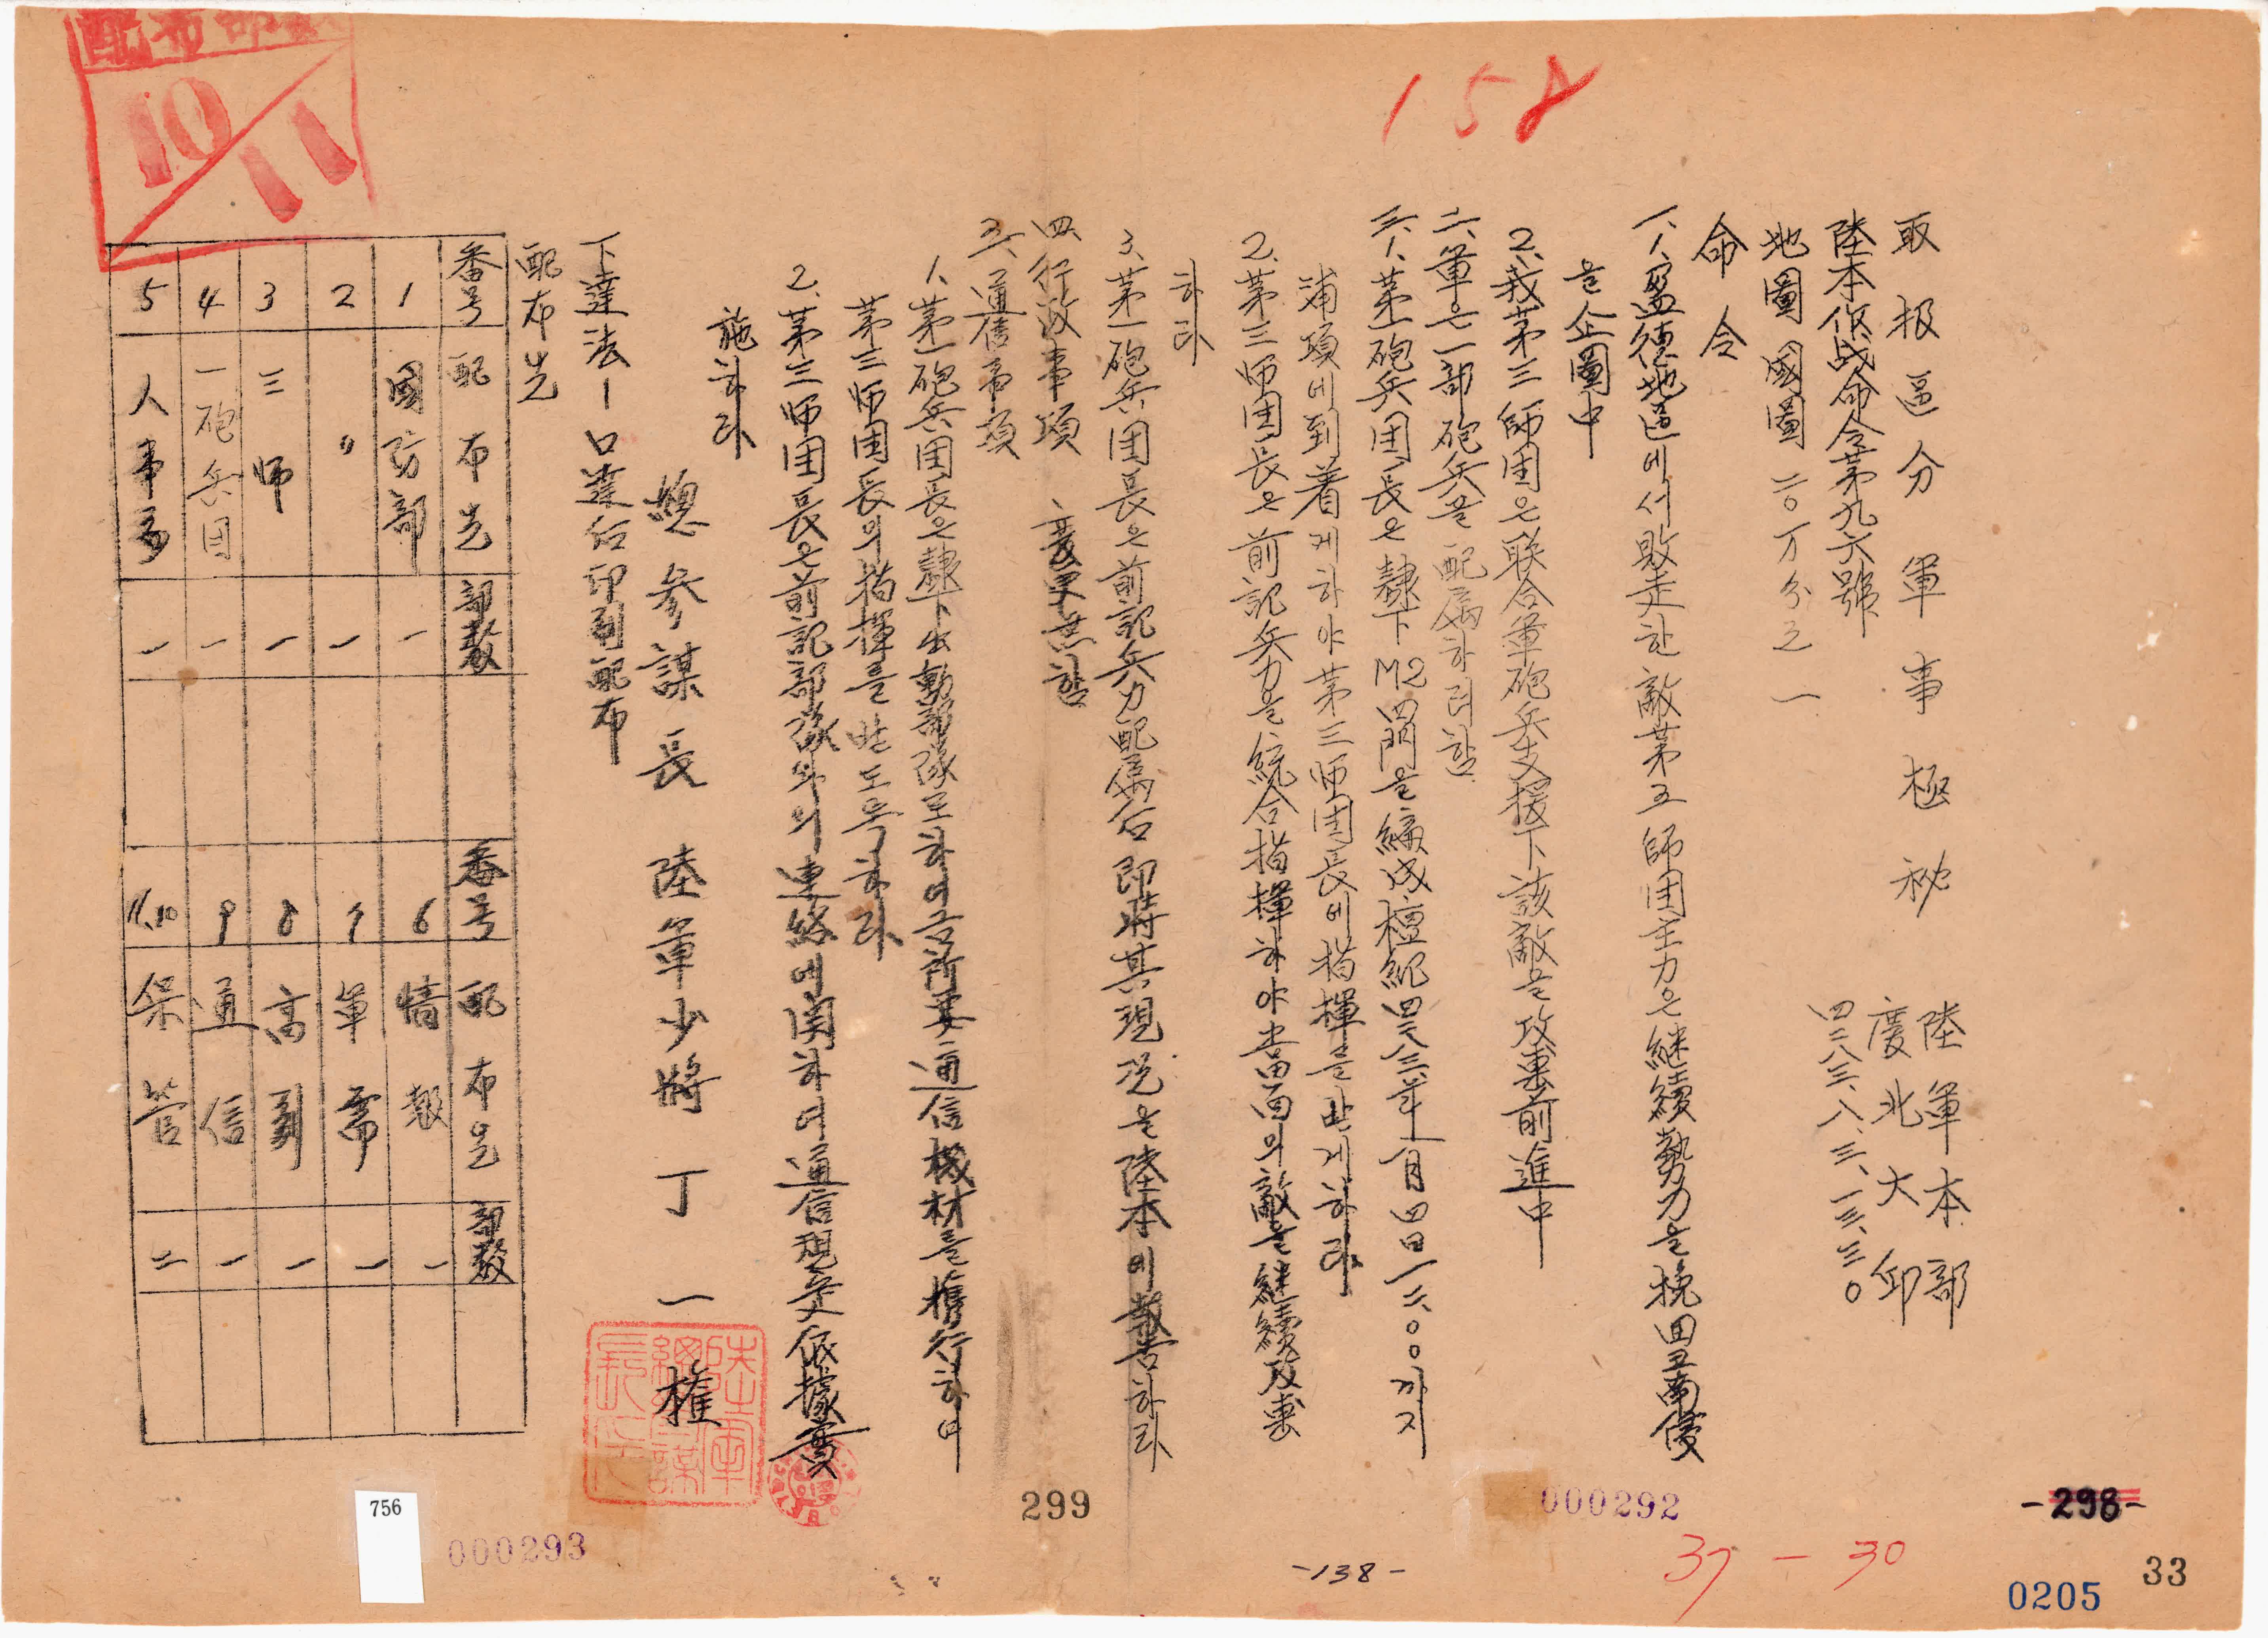 取扱區分 軍事極秘
陸軍本部
慶北大邱
四二八三、八、三、一三、三〇
陸本作戰命令第九六號
地圖 國圖 二〇万分之一
命令
一、1、盈德地區에서 敗走한 敵第五師団主力은 継續 勢力을 挽回코 南侵
을 企圖中
2、我第三師団은 联合軍砲兵支援下 該敵을 攻擊前進中
二、軍은 一部砲兵을 配属하려함
三、1、第一砲兵団長은 隷下 M2 四門을 編成 檀紀四二八三年 八月四日 一二、〇〇까지
浦項에 到着케하야 第三師団長에 指揮를 받게하라
2、第三師団長은 前記兵力을 統合指揮하야 当面의 敵을 継續攻擊
하라
3、第一砲兵団長은 前記兵力配属后 即時 其現況을 陸本에 報告하라
四、行政事項 変更無함
五、通信事項
1、第一砲兵団長은 隷下出動部隊로하여금 所要通信機材를 携行하며
第三師団長의 指揮를 받도록하라
2、第三師団長은 前記部隊와의 連絡에 関하여 通信規定 依據 實
施하라
總参謀長 陸軍少將 丁一權
下達法－口達后印刷配布
配布先
番号 配布先 部数 番号 配布先 部数
1 國防部 一 6 情報 一
2 〃 一 7 軍需 一
3 三師 一 8 高副 一
4 一砲兵団 一 9 通信 一
5 人事局 一 11、10 保管 二
配布部数
10/11
158
陸軍總參謀長印
756
000293
299
-138-
000292
37 - 30
-298-
0205
33